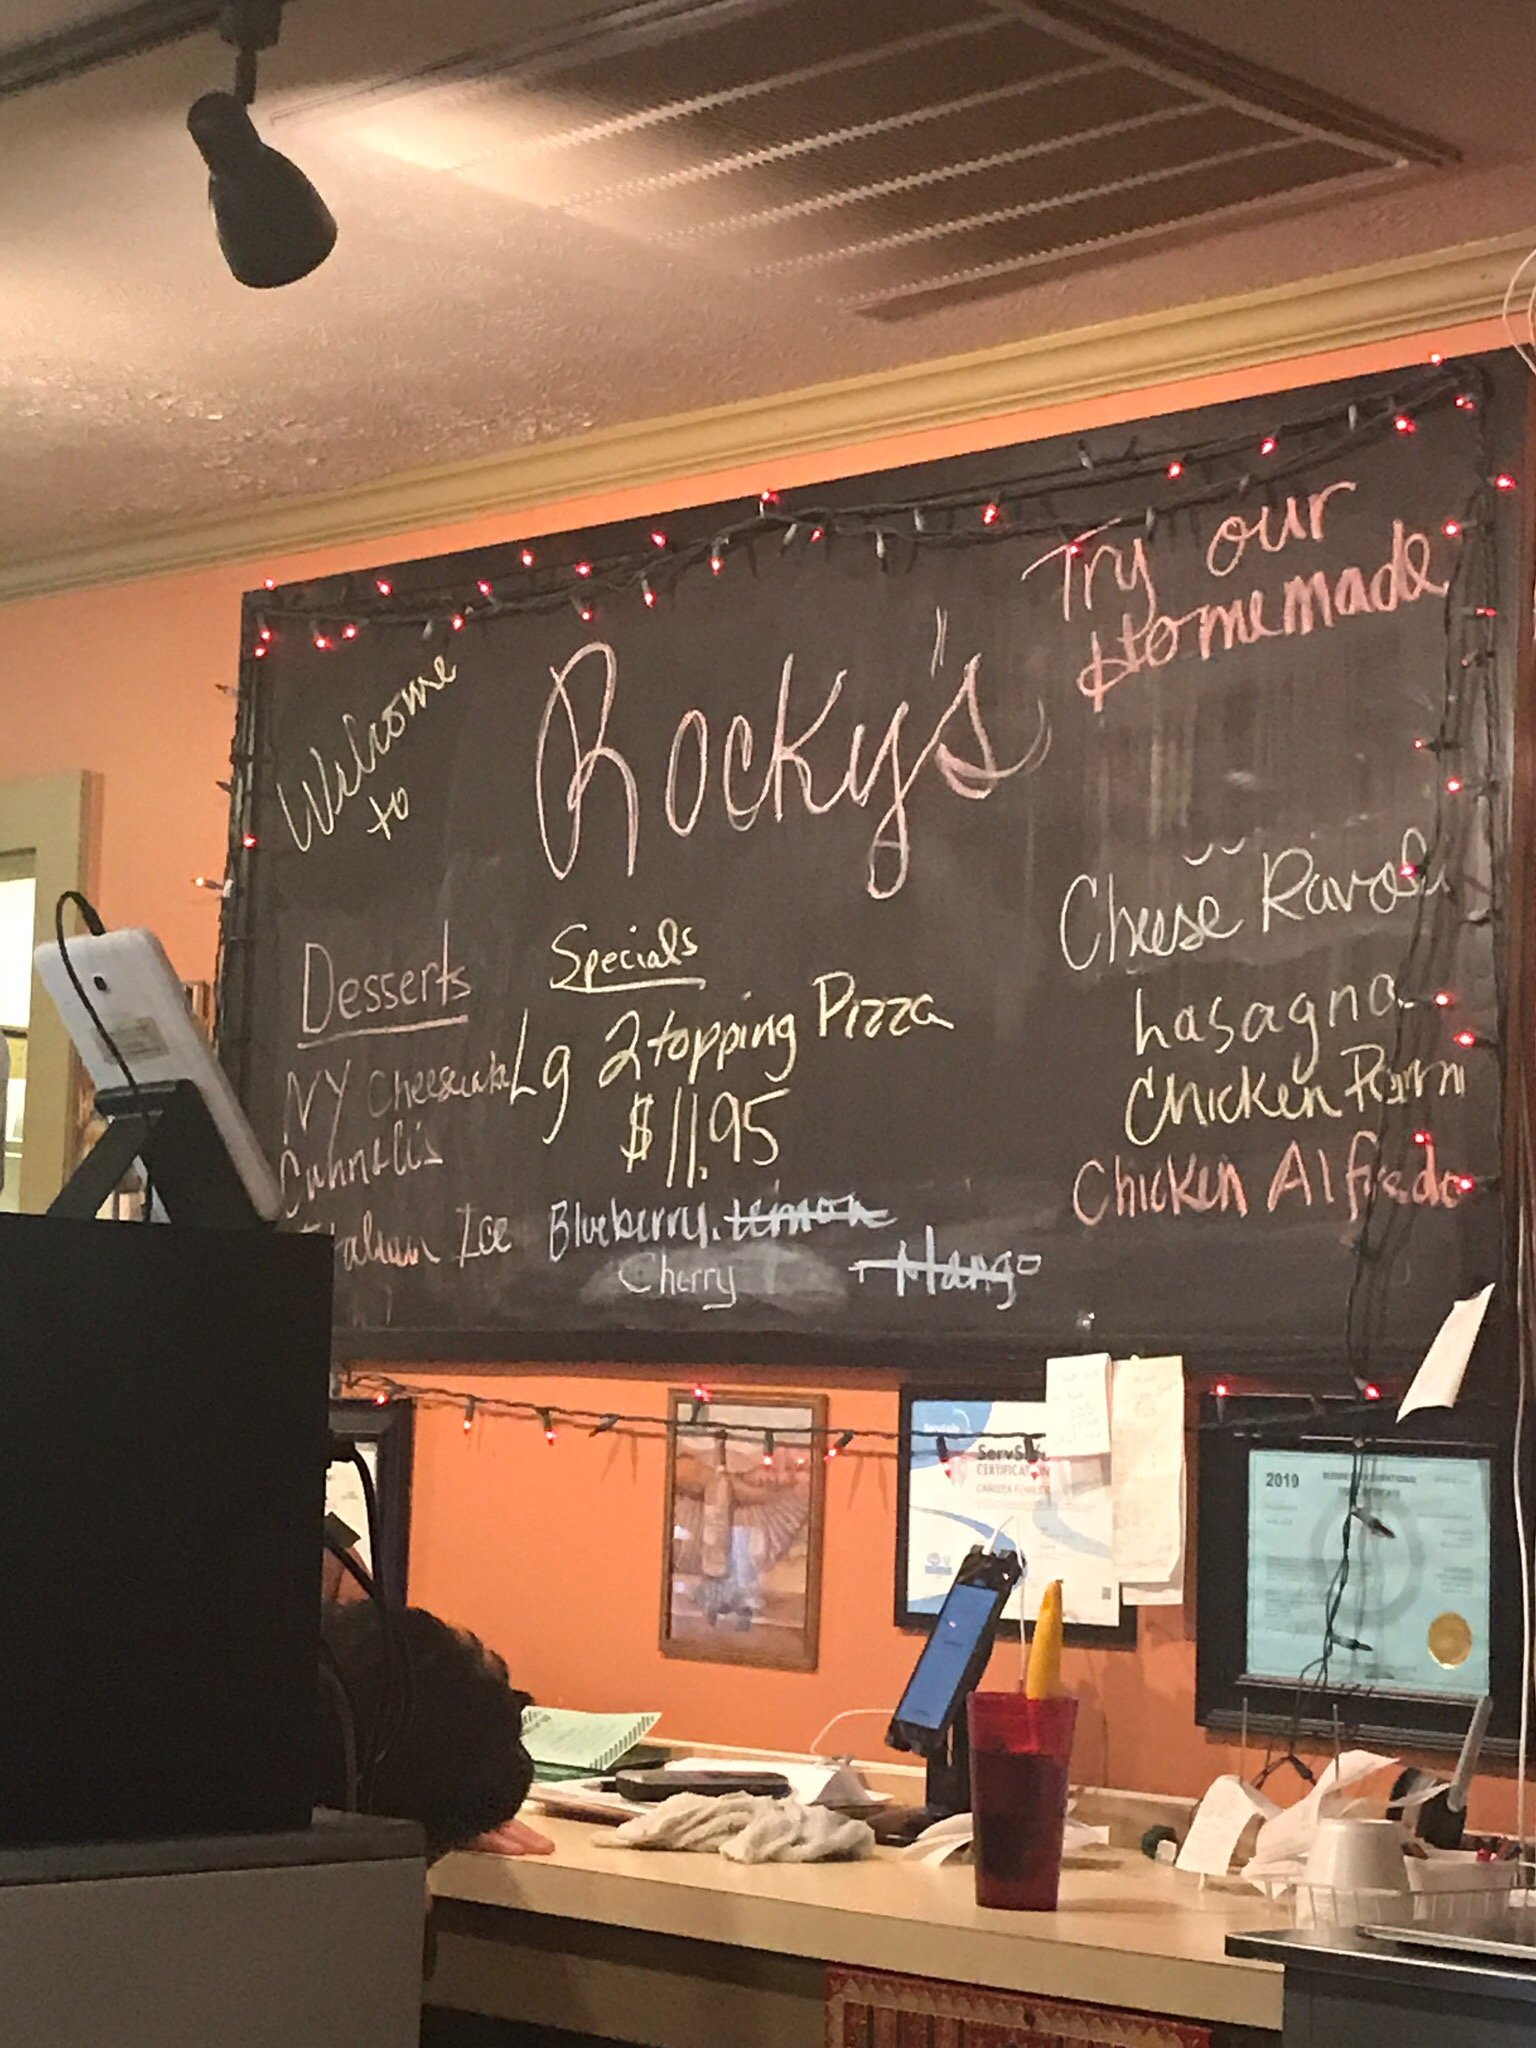 Welcome
to
Rocky's
Try our
Homemade
Desserts
NY Cheesecake
Cannolis
Italian Ice Blueberry. Lemon
Cherry Mango
Specials
Lg 2 topping Pizza
$11.95
Cheese Ravoli
Lasagna
Chicken Parm
Chicken Alfredo
ServSafe
CERTIFICATION
2019